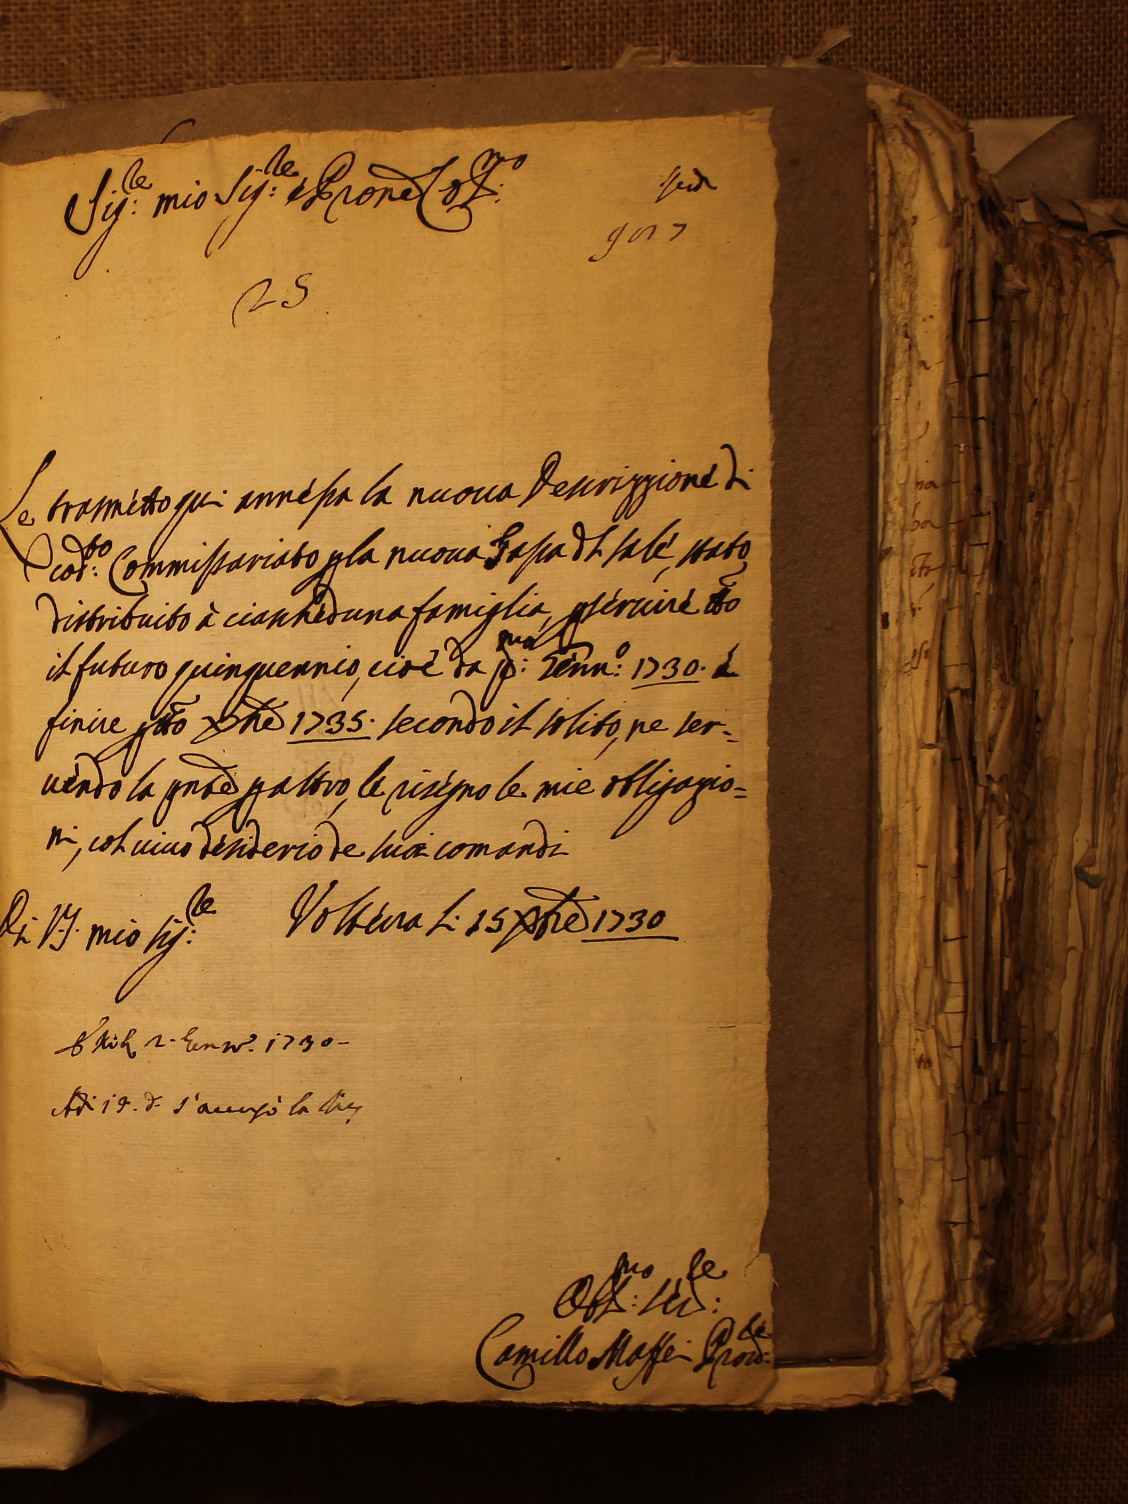 Sig:re mio Sig:re e Prone Col:mo
25
Le trasmetto qui annessa la nuova Descrizzione di
cod:to Commissariato p la nuova Tassa del sale, stato
distribuito à ciascheduna famiglia, p servire tto
il futuro quinquennio, cioè da p:mo Genn:o 1730. à
finire p tto Xbre 1735. secondo il solito, ne ser-
vendo la pnte p altro, le rasegno le mie obligazio=
ni, col vivo desiderio de suoi comandi
Di V.S. mio sig:re Volterra li 15 Xbre 1730
2. Genn:o 1730-
Adi 19. d.o s'accusò la
Obl:mo ser:re
Camillo Maffei Prov:re